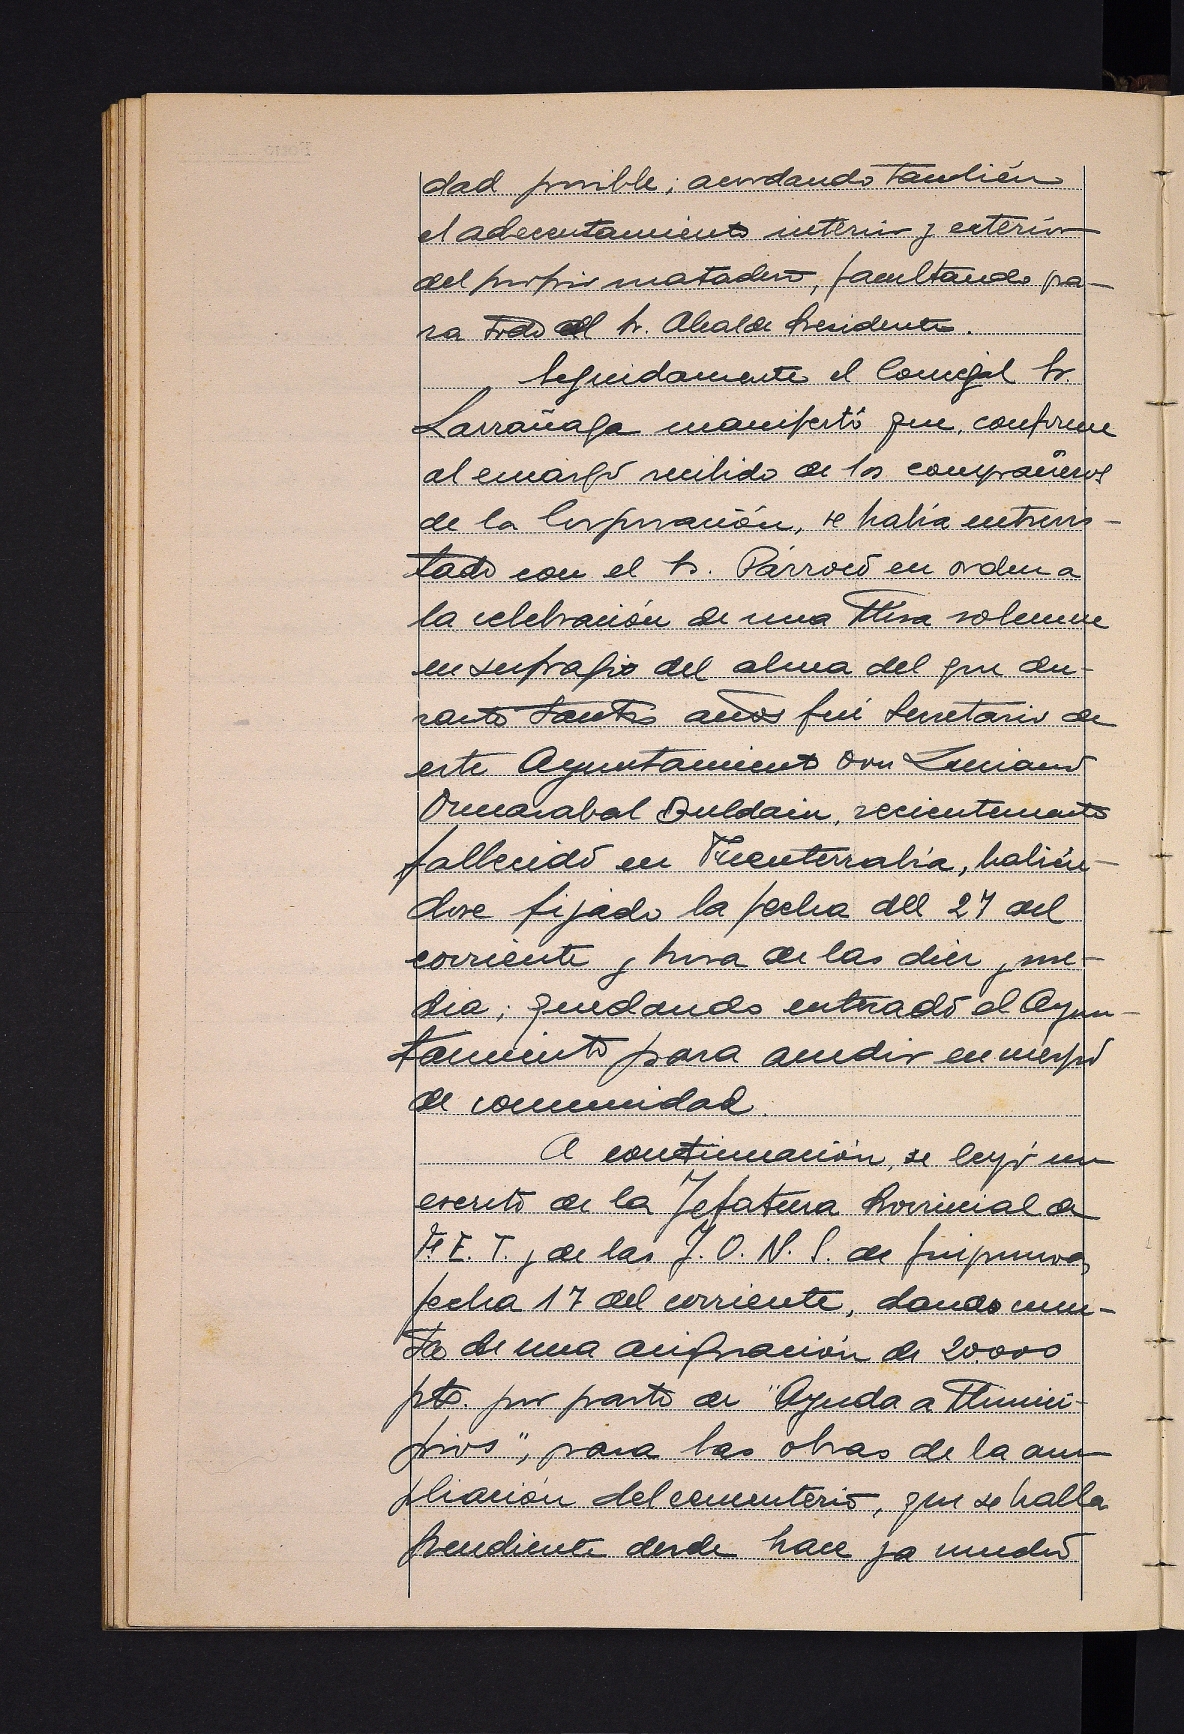 dad posible; acordando también
el adecentamiento interior y exterior
del propio matadero, facultando pa-
ra todo al Sr. Alcalde Presidente.
Seguidamente el Concejal Sr.
Larrañaga manifestó que, conforme
al encargo recibido de los compañeros
de la Corporación, se había entrevis-
tado con el Sr. Párroco en orden a
la celebración de una Misa solemne
en sufragio del alma del que du-
rante tantos años fué Secretario de
este Ayuntamiento Don Luciano
Ormazabal Buldain, recientemente
fallecido en Fuenterrabía, habién-
dose fijado la fecha del 27 del
corriente y hora de las diez y me-
dia; quedando enterado el Ayun-
tamiento para acudir en cuerpo
de comunidad.
A continuación, se leyó un
escrito de la Jefatura Provincial de
F. E. T. y de las J. O. N. S. de Guipuzcoa,
fecha 17 del corriente, dando cuen-
ta de una asignación de 20.000
pts. por parte de "Ayuda a Munici-
pios", para las obras de la am
pliación del cementerio, que se halla
pendiente desde hace ya mucho